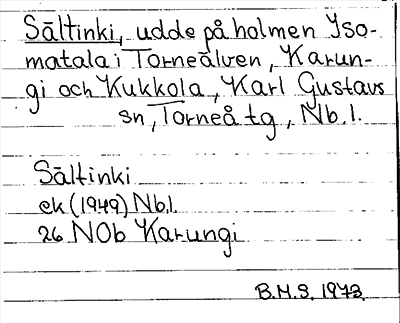 Sältinki, udde på holmen Iso-
matala i Torneälven, Karun-
gi och Kukkola, Karl Gustavs
sn, Torneå tg, Nb.l.
Sältinki
ek (1949) Nb.l.
26 NOb Karungi
B.M.S. 1973.